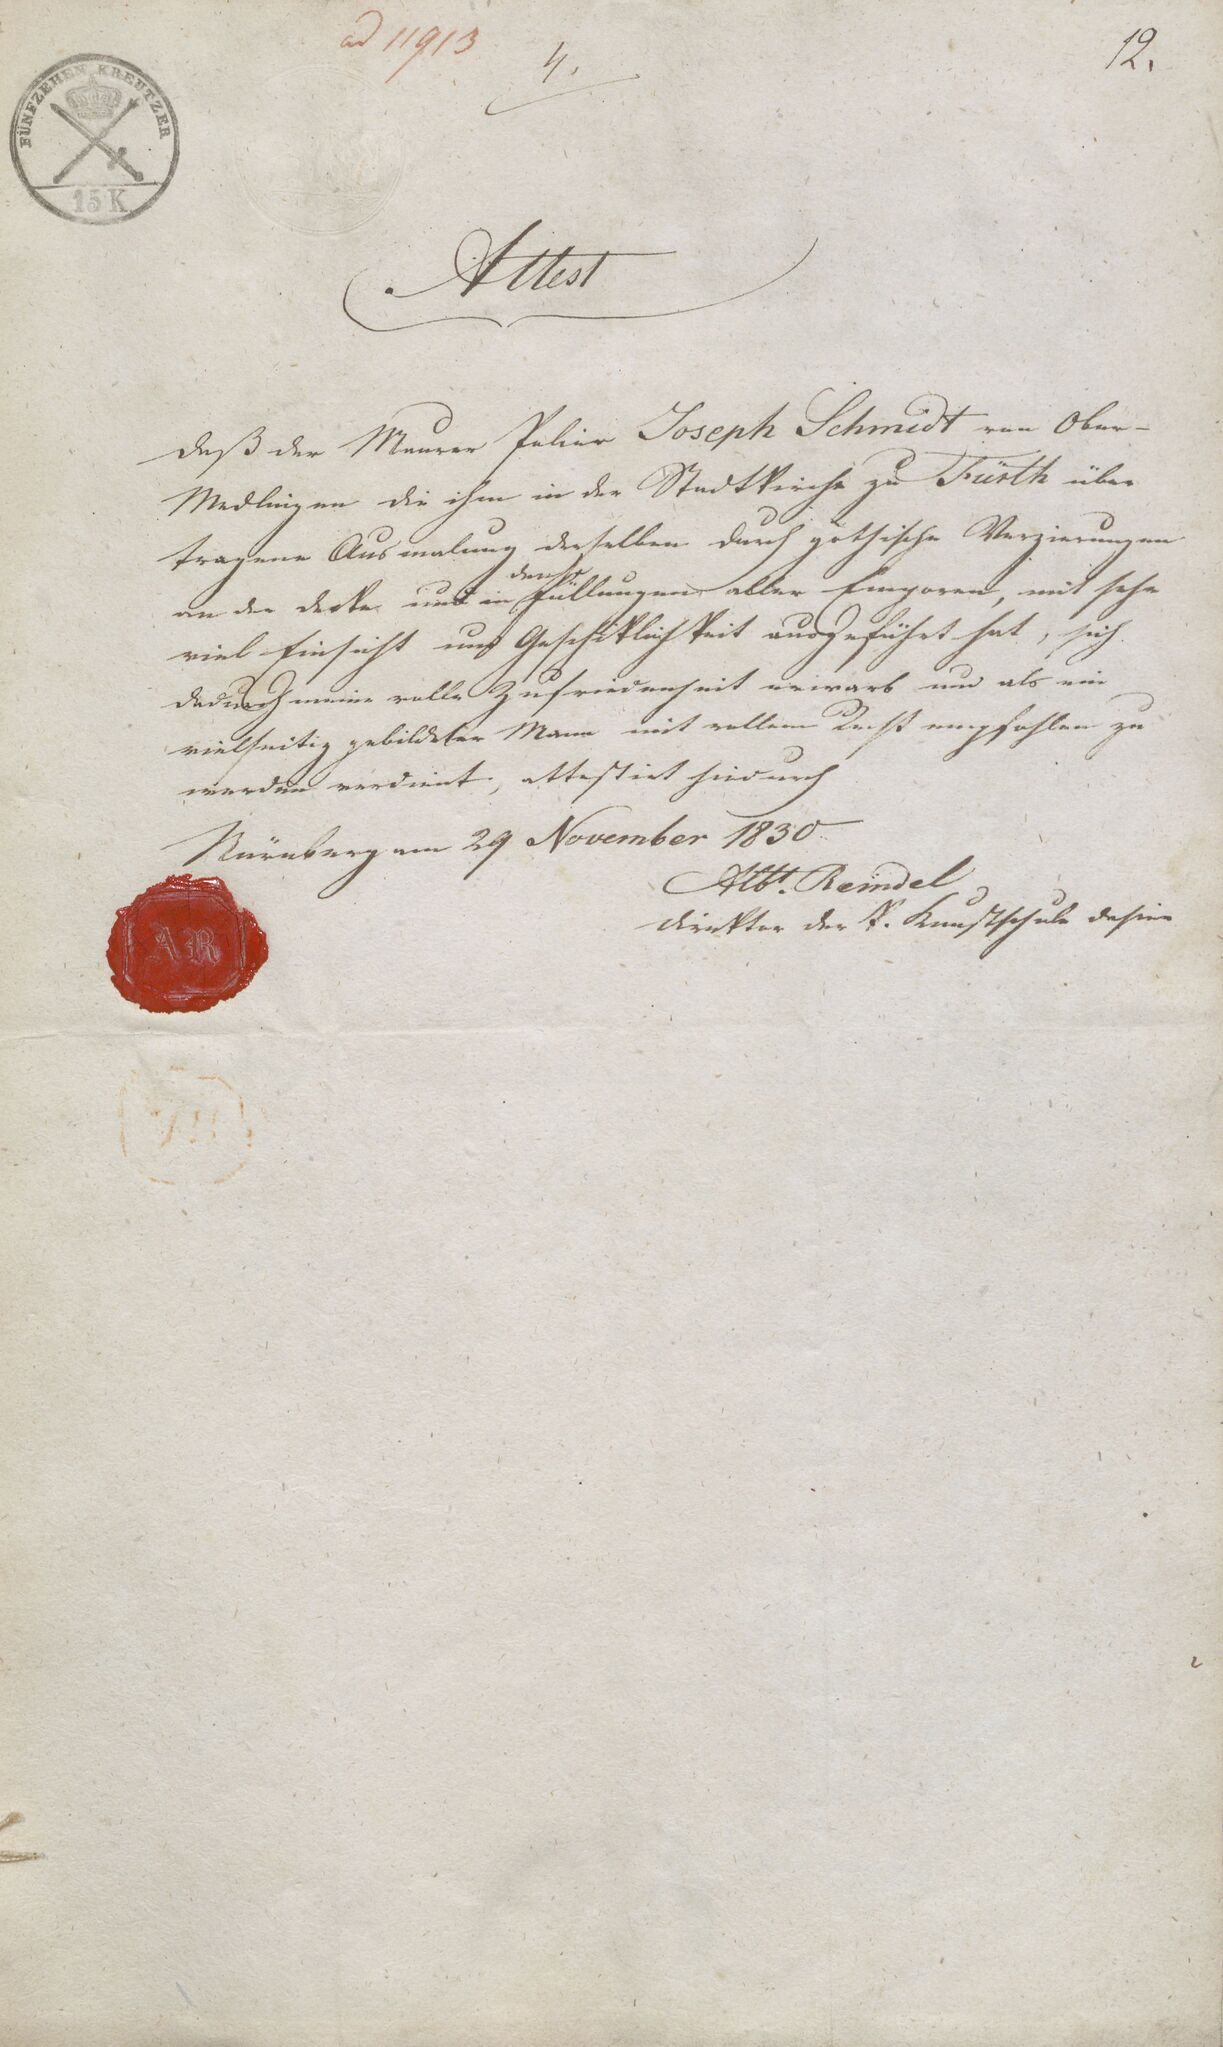 ad 11913
4.
12.
FÜNFZEHEN KREUTZER
15 K
Attest
daß der Maurer Polier Joseph Schmidt von Ober-
Medlingen die ihm in der Stadtkirche zu Fürth über
tragene Ausmalung derselben durch gothische Verzierungen
an der Decke und in den Füllungen aller Emporen, mit sehr
viel Einsicht und Geschiklichkeit ausgeführt hat, sich
dadurch meine volle Zufriedenheit erwarb und als ein
vielseitig gebildeter Mann mit vollem Recht empfohlen zu
werden verdient, attestirt hiedurch
Nürnberg am 29 November 1830
Albt. Reindel
Direktor der k. Kunstschule
AR